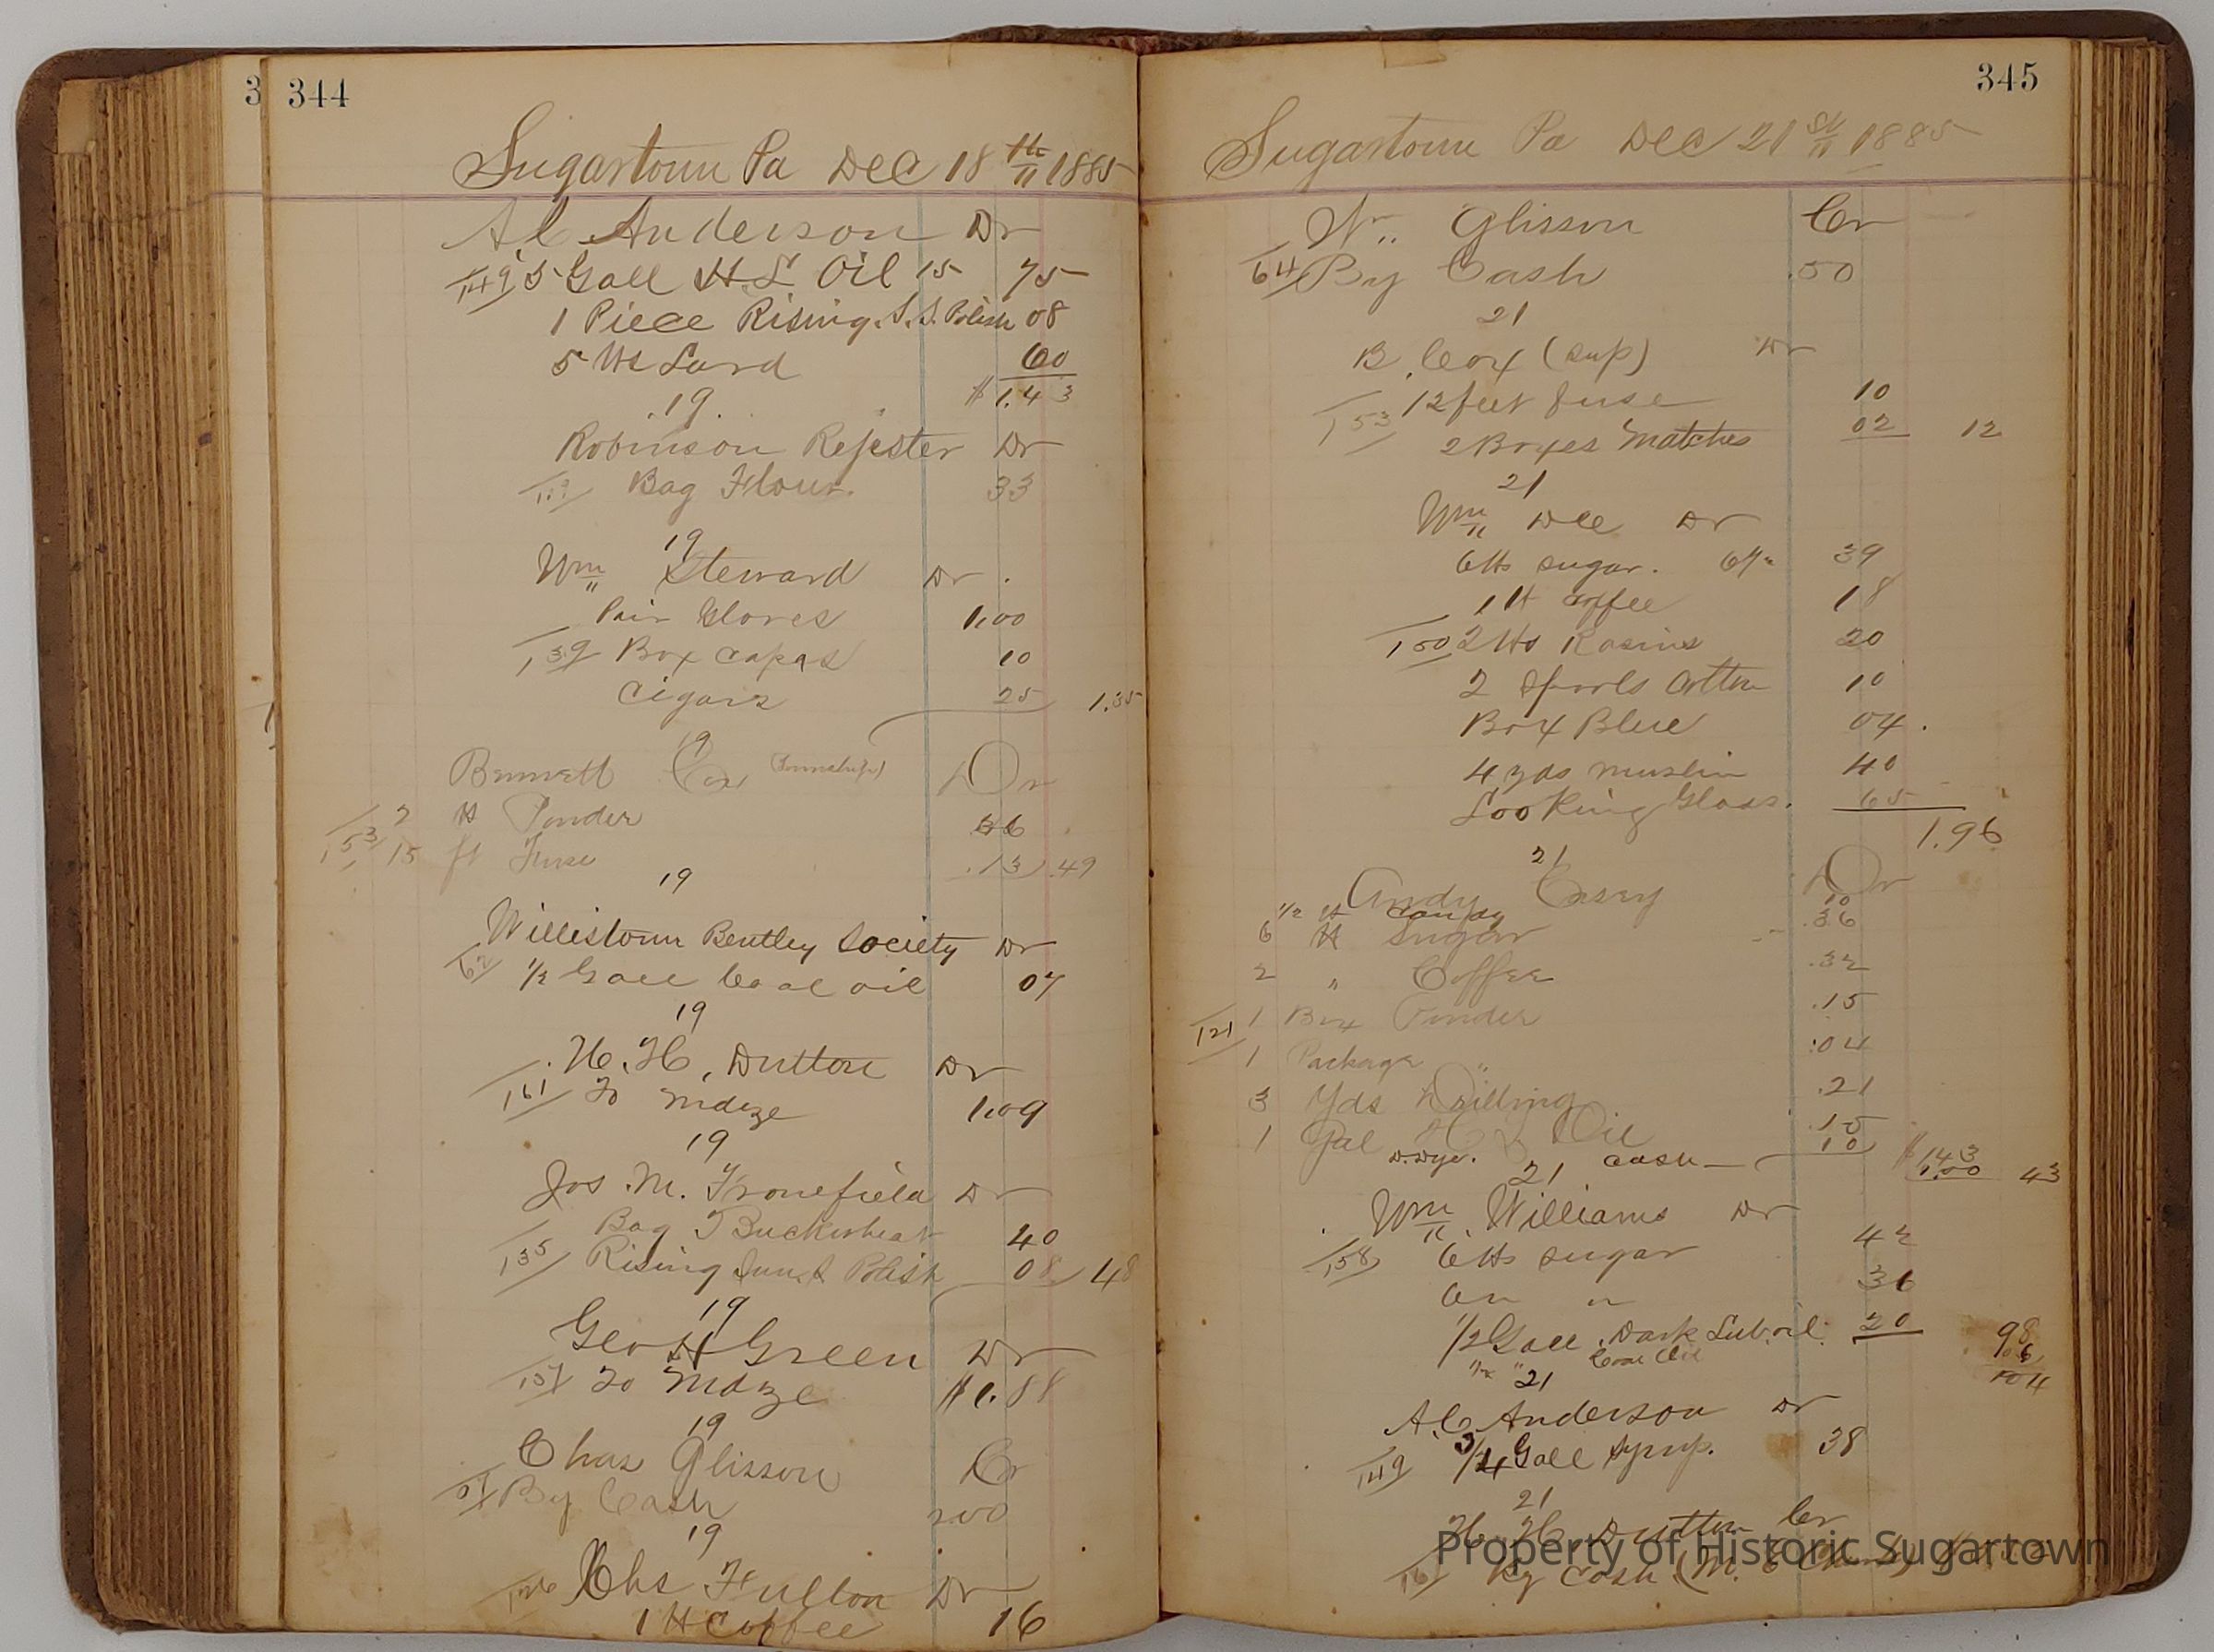 3 344
Sugartown Pa Dec 18th 1885
A.C. Anderson Dr
149 5 Gall H L Oil 15 75
1 Piece Rising S. S. Polish 08
5 lbs Lard 60
19. $1.43
Robinson Rejester Dr
Bag Flour. 33
19
Wm Steward Dr.
Pair Gloves 1.00
139 Box capas 10
Cigars 25 1.35
19
Bennett Cox (Township) Dr
2 lb Powder 36
153 15 ft Fuse .13 .49
19
Willistown Bentley Society Dr
62 1/2 Gall Coal oil 07
19
H. H. Dutton Dr
161 To Mdze 1.09
19
Jos. M. Fronefield Dr
Bag Buckwheat 40
135 Rising Sun S Polish 08 48
19
Geo H Green Dr
157 To Mdze $1.88
19
Chas Glisson Cr
57 By Cash 200
19
126 Chs Fulton Dr
1 lb Coffee 16
345
Sugartown Pa Dec 21st 1885
Wm Glisson Cr
64 By Cash .50
21
B. Cox (sup) Dr
12 feet fuse 10
153
2 Boxes Matches 02 12
21
Wm Dee Dr
6 lbs sugar. 39
1 lb coffee 18
150 2 lbs Rasins 20
2 Spools Cotton 10
Box Blue 04.
4 yds muslin 40
Looking Glass. 65
1.96
21
Andy Casey Dr
1/2 lb Candy 10
6 lb Sugar .36
2 " Coffee .32
121 1 Box Powder .15
1 Package " .04
3 Yds Drilling .21
1 Gal H L Oil .15
cash 10 $1.43
21 1.00 43
Wm Williams Dr
158 6 lbs sugar 42
36
1/2 Gall Dark Lub. oil. 20 98
1/2 " Coal Oil 06
21 104
A.C. Anderson Dr
149 3/4 Gall Syrup. 38
21
H. H. Dutton Cr
161 By Cash
Property of Historic Sugartown